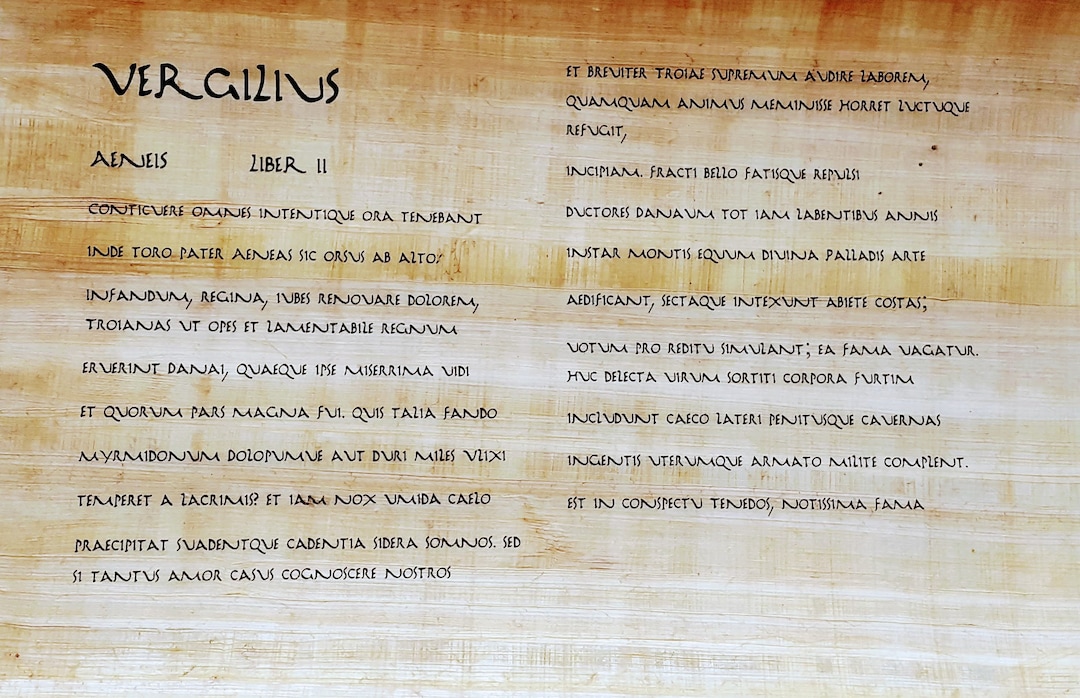 VERGILIUS
AENEIS LIBER II
CONTICUERE OMNES INTENTIQUE ORA TENEBANT
INDE TORO PATER AENEAS SIC ORSUS AB ALTO:
INFANDUM, REGINA, IUBES RENOUARE DOLOREM,
TROIANAS UT OPES ET LAMENTABILE REGNUM
ERUERINT DANAI, QUAEQUE IPSE MISERRIMA UIDI
ET QUORUM PARS MAGNA FUI. QUIS TALIA FANDO
MYRMIDONUM DOLOPUMUE AUT DURI MILES ULIXI
TEMPERET A LACRIMIS? ET IAM NOX UMIDA CAELO
PRAECIPITAT SUADENTQUE CADENTIA SIDERA SOMNOS. SED
SI TANTUS AMOR CASUS COGNOSCERE NOSTROS
ET BREUITER TROIAE SUPREMUM AUDIRE LABOREM,
QUAMQUAM ANIMUS MEMINISSE HORRET LUCTUQUE
REFUGIT,
INCIPIAM. FRACTI BELLO FATISQUE REPULSI
DUCTORES DANAUM TOT IAM LABENTIBUS ANNIS
INSTAR MONTIS EQUUM DIUINA PALLADIS ARTE
AEDIFICANT, SECTAQUE INTEXUNT ABIETE COSTAS;
UOTUM PRO REDITU SIMULANT; EA FAMA UAGATUR.
HUC DELECTA UIRUM SORTITI CORPORA FURTIM
INCLUDUNT CAECO LATERI PENITUSQUE CAVERNAS
INGENTIS UTERUMQUE ARMATO MILITE COMPLENT.
EST IN CONSPECTU TENEDOS, NOTISSIMA FAMA